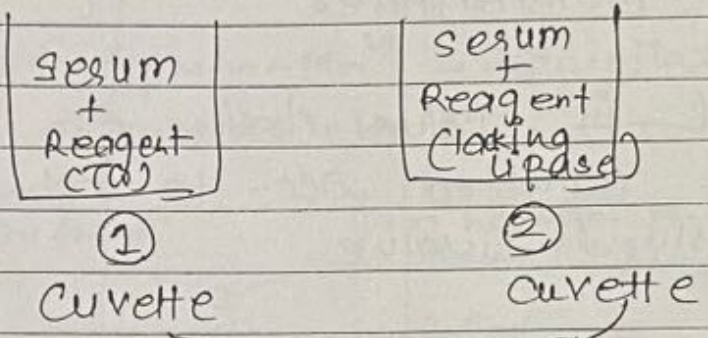 serum
+
Reagent
(TG)
①
Cuvette
serum
+
Reagent
(lacking
Lipase)
②
Cuvette